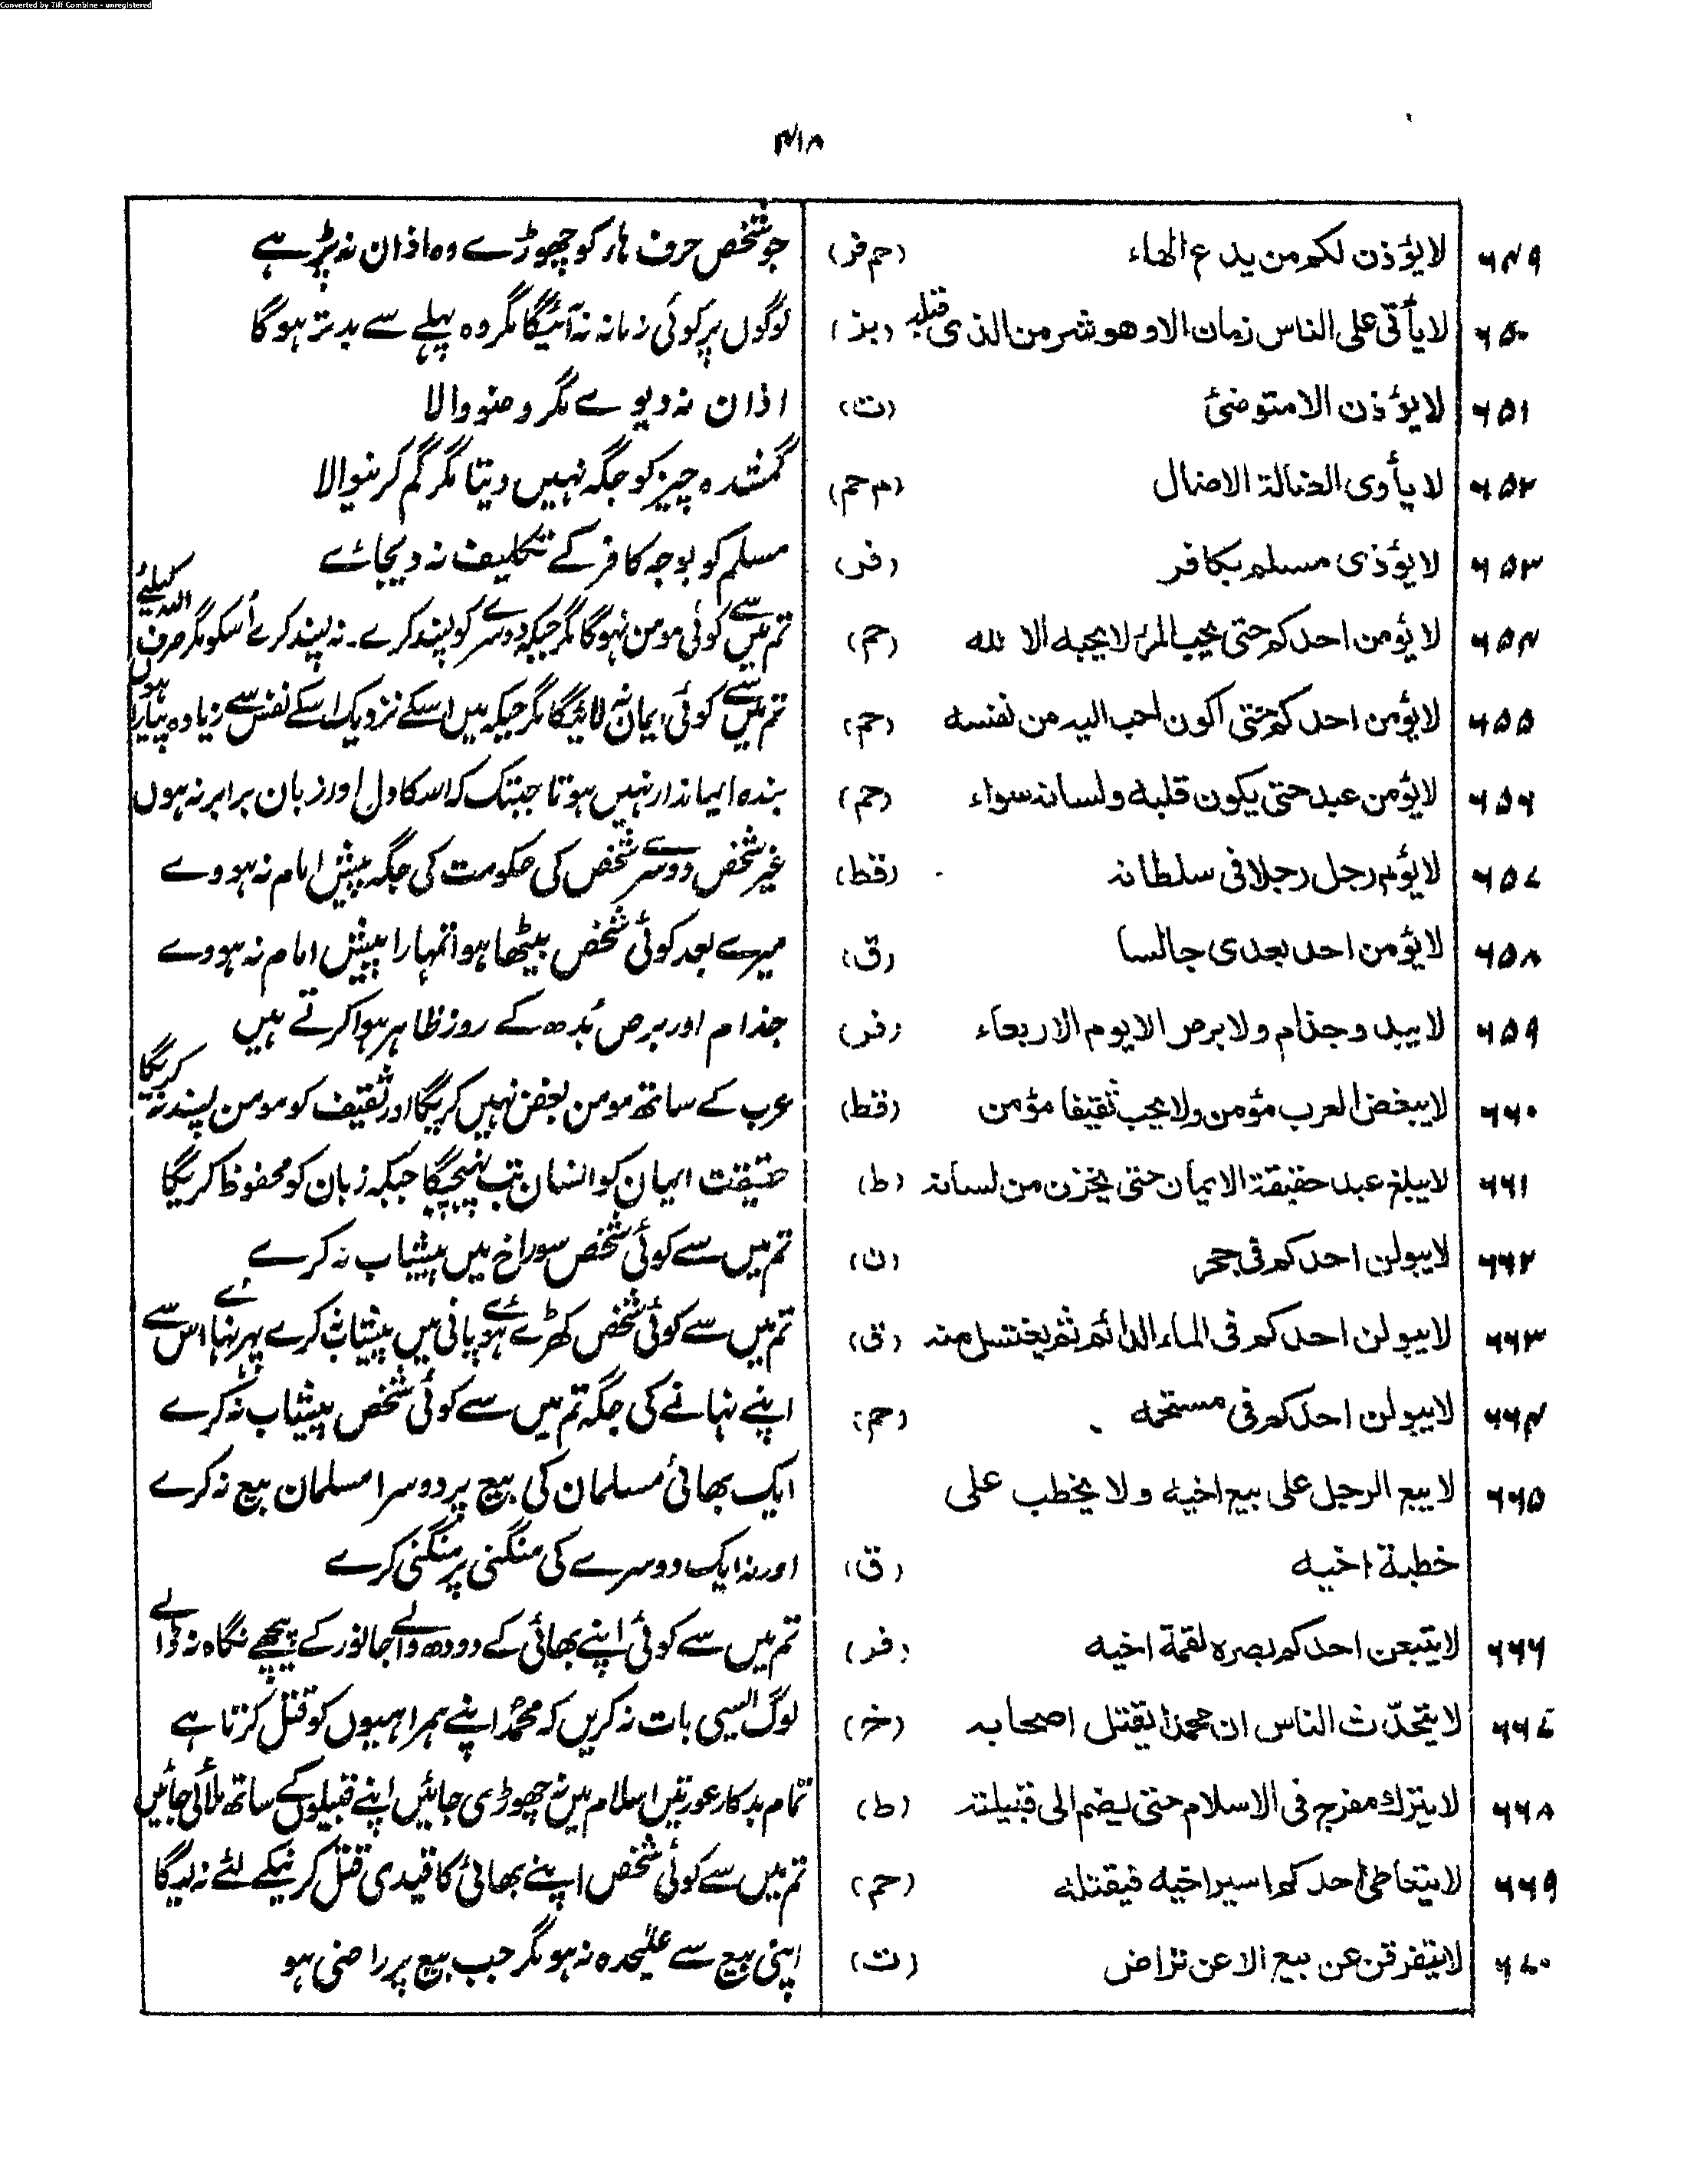 Converted by Tiff Combine - unregistered
۴۱۸
۶۴۹ لا یؤذن لکم من یدع الهاء (حم فر) جو شخص حرف ہار کو چھوڑے وہ اذان نہ پڑہے
۶۵۰ لا یأتی علی الناس زمان الا وهو شر من الذی قبله (بز) لوگوں پر کوئی زمانہ نہ آئیگا مگر وہ پہلے سے بدتر ہوگا
۶۵۱ لا یؤذن الا متوضئ (ت) اذان نہ دیوے مگر وضو والا
۶۵۲ لا یأوی الضالة الا ضال (م حم) گمشدہ چیز کو جگہ نہیں دیتا مگر گم کرنیوالا
۶۵۳ لا یؤذی مسلم بکافر (فر) مسلم کو بوجہ کافر کے تکلیف نہ دیجائے
۶۵۴ لا یؤمن احدکم حتی یحب المرء لا یحبه الا لله (حم) تم میں سے کوئی مومن نہوگا مگر جبکہ دوسرے کو پسند کرے۔ نہ پسند کرے اُسکو مگر صرف اللہ کیلئے
۶۵۵ لا یؤمن احدکم حتی اکون احب الیه من نفسه (حم) تم میں سے کوئی ایمان نہ لائیگا مگر جبکہ میں اسکے نزدیک اسکے نفس سے زیادہ پیارا ہوں
۶۵۶ لا یؤمن عبد حتی یکون قلبه ولسانه سواء (حم) بندہ ایماندار نہیں ہوتا جبتک کہ اسکا دل اور زبان برابر نہ ہوں
۶۵۷ لا یؤم رجل رجلا فی سلطانه (قط) غیر شخص دوسرے شخص کی حکومت کی جگہ پیش امام نہ ہووے
۶۵۸ لا یؤمن احد بعدی جالسا (ق) میرے بعد کوئی شخص بیٹھا ہوا تمہارا پیش امام نہ ہووے
۶۵۹ لا یبدو جذام ولا برص الا یوم الاربعاء (فر) جذام اور برص بُدھ کے روز ظاہر ہوا کرتے ہیں
۶۶۰ لا یبغض العرب مؤمن ولا یحب ثقیفا مؤمن (قط) عرب کے ساتھ مومن بغض نہیں کریگا اور ثقیف کو مومن پسند نہ کریگا
۶۶۱ لا یبلغ عبد حقیقة الایمان حتی یخزن من لسانه (ط) حقیقت ایمان کو انسان تب پہنچیگا جبکہ زبان کو محفوظ کریگا
۶۶۲ لا یبولن احدکم فی جحر (ن) تم میں سے کوئی شخص سوراخ میں پیشاب نہ کرے
۶۶۳ لا یبولن احدکم فی الماء الدائم ثم یغتسل منه (ق) تم میں سے کوئی شخص کھڑے ہوئے پانی میں پیشاب نہ کرے پہر نہائے اس سے
۶۶۴ لا یبولن احدکم فی مستحمه (حم) اپنے نہانے کی جگہ تم میں سے کوئی شخص پیشاب نہ کرے
۶۶۵ لا یبیع الرجل علی بیع اخیه ولا یخطب علی ایک بھائی مسلمان کی بیع پر دوسرا مسلمان بیع نہ کرے
خطبة اخیه (ق) اور نہ ایک دوسرے کی منگنی پر منگنی کرے
۶۶۶ لا یتبعن احدکم بصره لقمة اخیه (فر) تم میں سے کوئی اپنے بھائی کے دودھ والے جانور کے پیچھے نگاہ نہ ڈالے
۶۶۷ لا یتحدّث الناس ان محمدا یقتل اصحابه (خ) لوگ ایسی بات نہ کریں کہ محمدؐ اپنے ہمراہیوں کو قتل کرتا ہے
۶۶۸ لا یترك مفرج فی الاسلام حتی یضم الی قبیلته (ط) تمام بدکار عورتیں اسلام میں نہ چھوڑی جائیں اپنے قبیلوں کے ساتھ ملائی جائیں
۶۶۹ لا یتعاطی احدکم اسیر اخیه فیقتله (حم) تم میں سے کوئی شخص اپنے بھائی کا قیدی قتل کرنیکے لئے نہ لیگا
۶۷۰ لا یتفرقن عن بیع الا عن تراض (ت) اپنی بیع سے علیٰحدہ نہ ہو مگر جب بیع پر راضی ہو